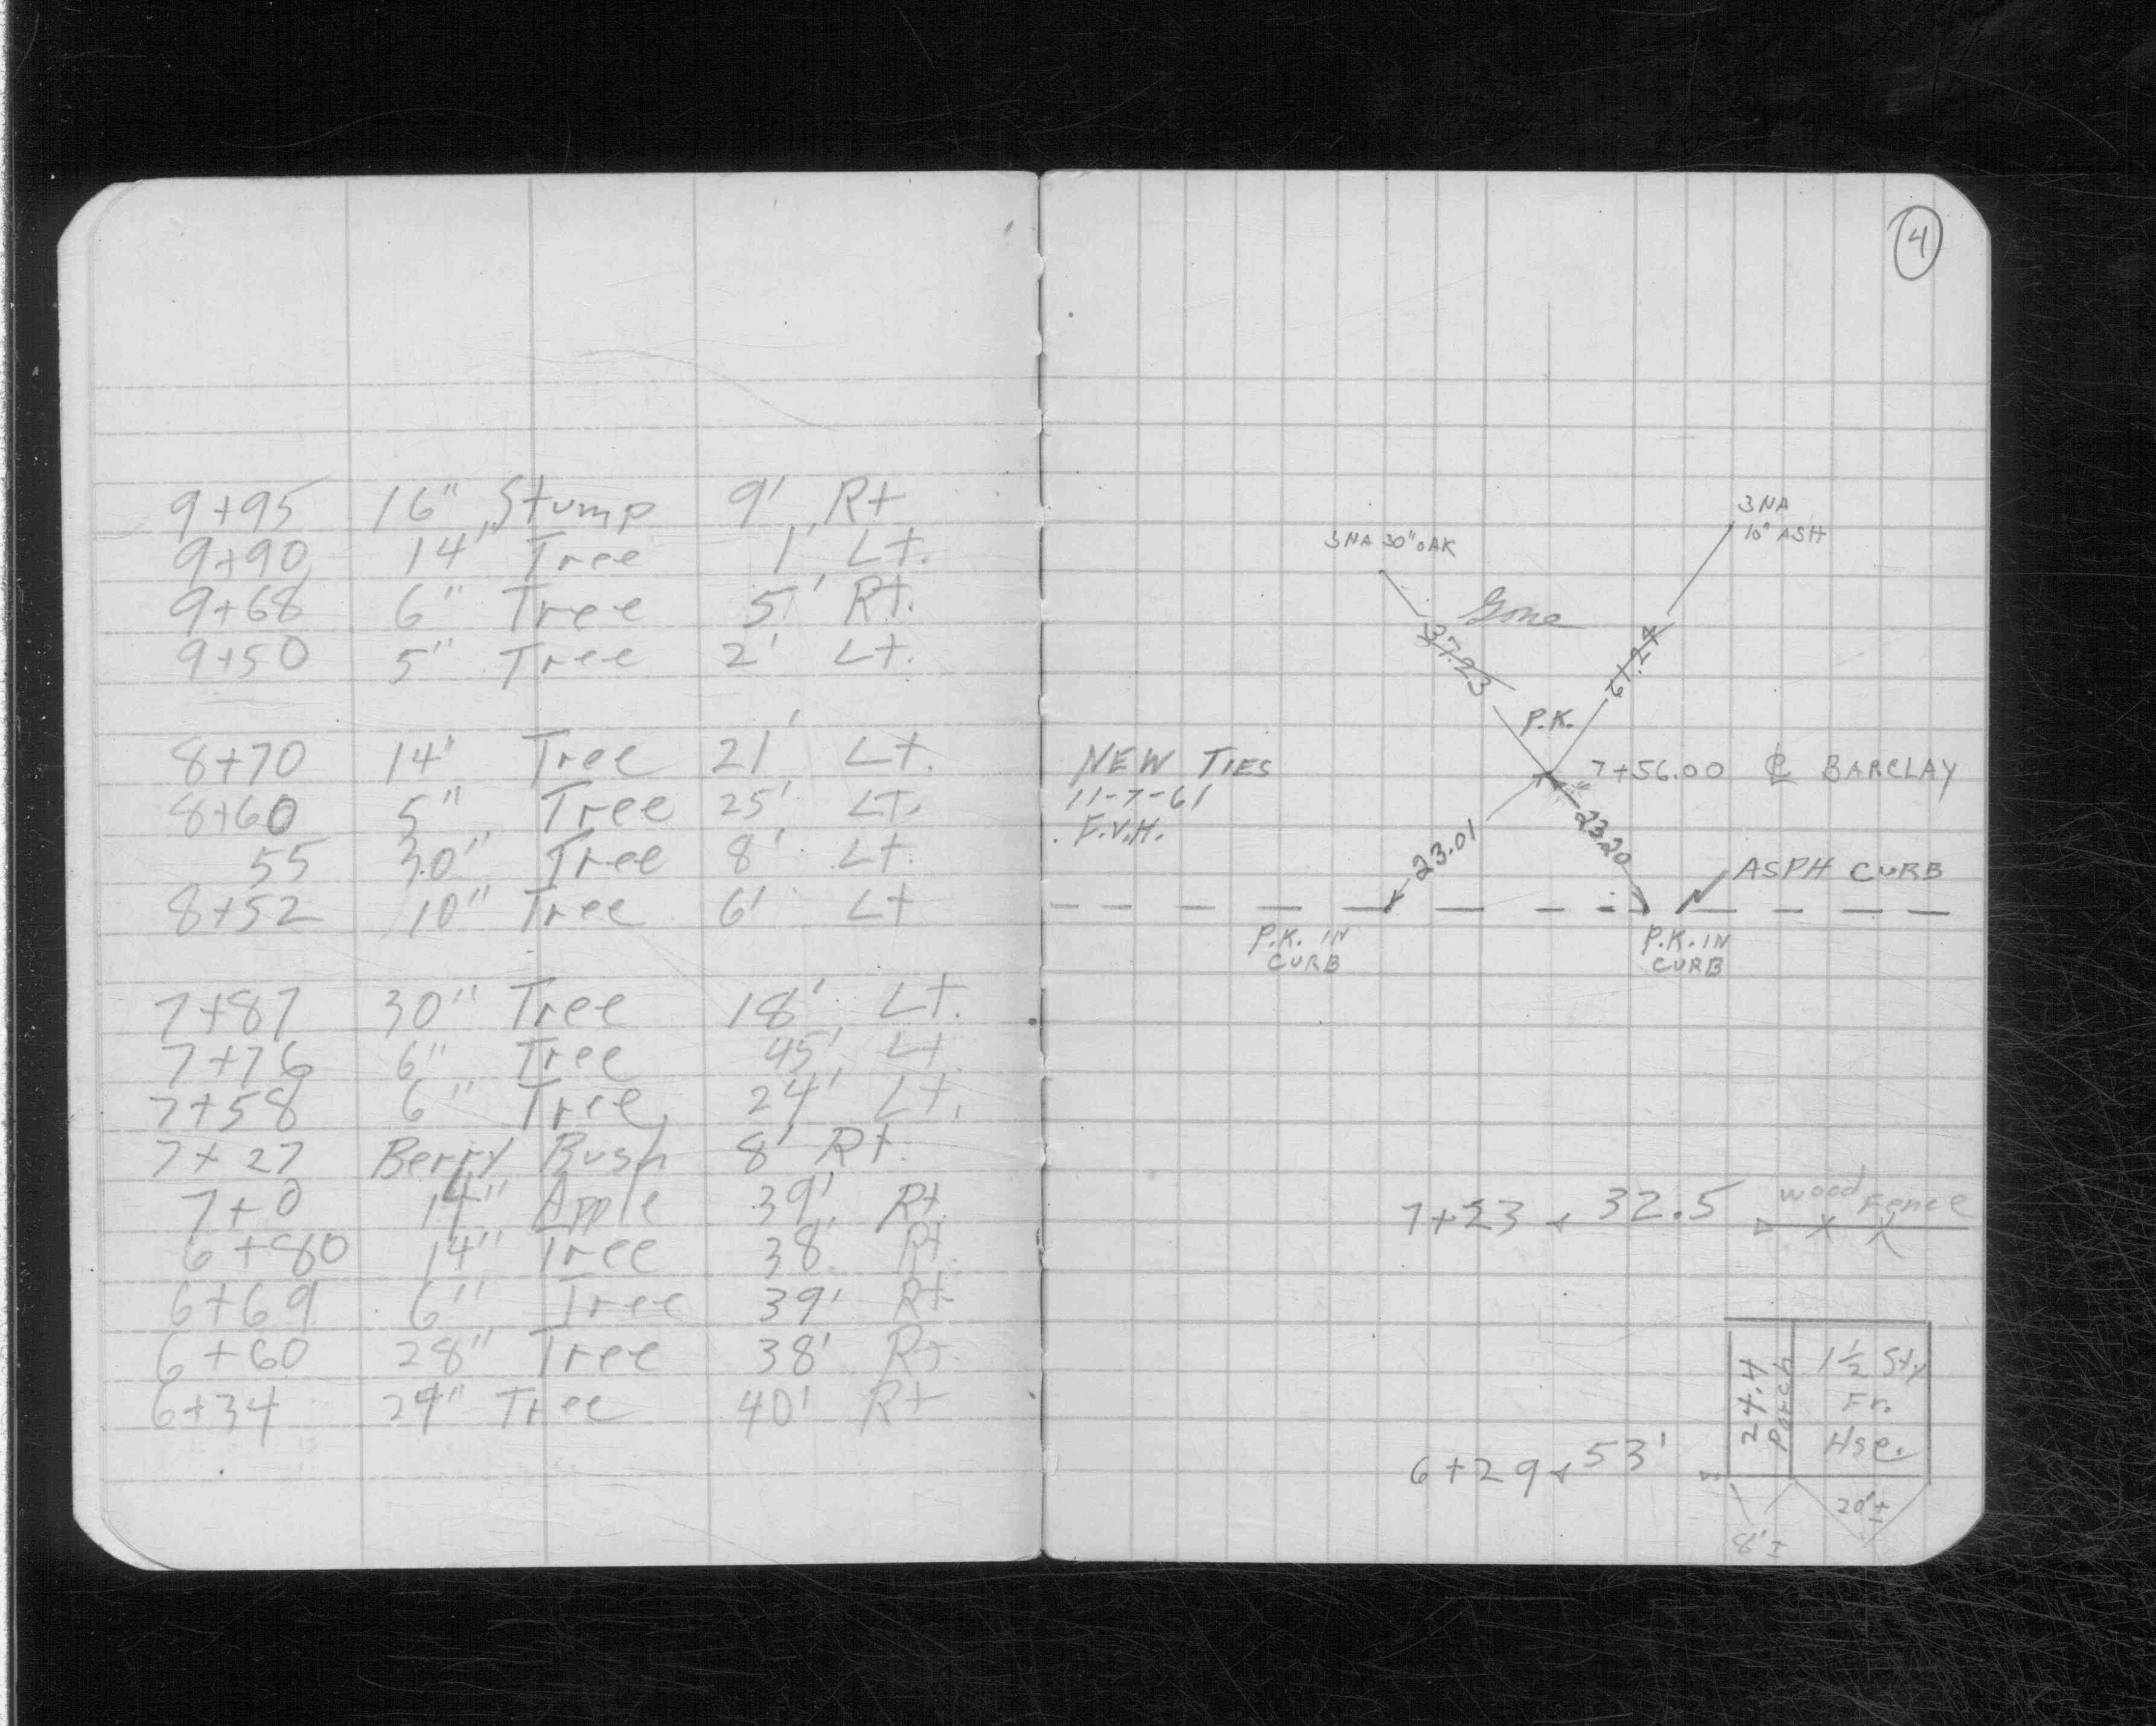 9+95 16" Stump 9' Rt
9+90 14" Tree 1' Lt.
9+68 6" Tree 5' Rt.
9+50 5" Tree 2' Lt.
8+70 14" Tree 21' Lt.
8+60 5" Tree 25' Lt.
55 30" Tree 8' Lt.
8+52 10" Tree 6' Lt
7+87 30" Tree 18' Lt.
7+76 6" Tree 45' Lt.
7+58 6" Tree 24' Lt.
7+27 Berry Bush 8' Rt.
7+0 14" Apple 39' Rt.
6+80 14" Tree 38' Rt.
6+69 6" Tree 39' Rt.
6+60 28" Tree 38' Rt.
6+34 Tree 40' Rt
4
3NA
10" ASH
3NA 30" OAK
Gone
37.23
61.24
P.K.
NEW TIES
7+56.00 ℄ BARCLAY
11-7-61
F.V.H.
23.01
23.20
ASPH CURB
P.K. IN
CURB
P.K. IN
CURB
7+23 32.5 wood Fence
24.4
Porch
1½ Sty
Fr.
Hse.
6+29 53'
20'±
8'±